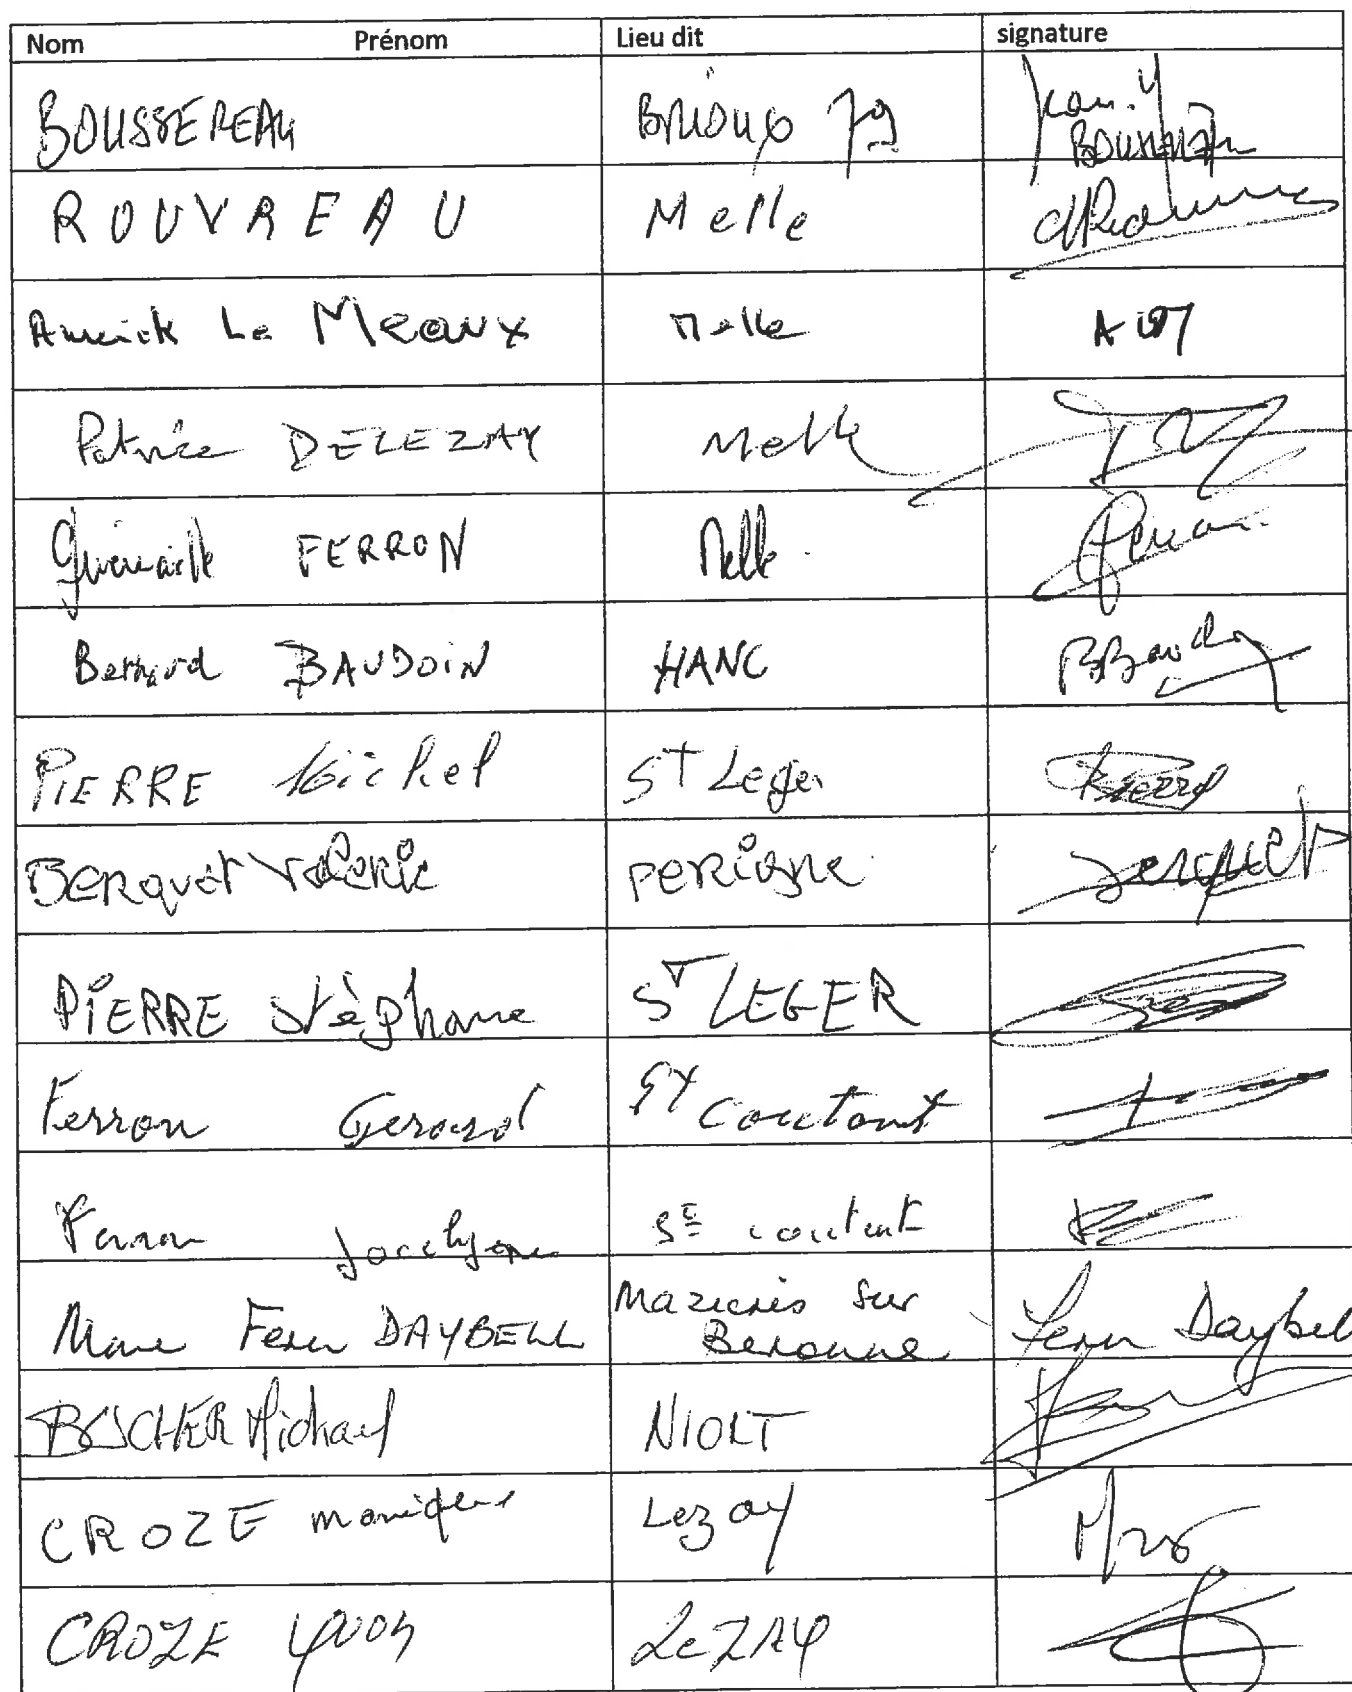 Nom Prénom Lieu dit signature
BOUSSEREAU Brioux 79 Jean.Y
BOUSSEREAU
ROUVREAU Melle
Annick Le Meaux Melle ALM
Patrice DELEZAY Melle
FERRON Melle
Bernard BAUDOIN HANC BBaudoin
PIERRE Michel St Leger Pierre
BERQUET Valérie PERIGNE Berquet
PIERRE Stéphane ST LEGER
Ferron Gerard St Coutant
Ferron Jocelyne St coutant
Mazieres sur
Fern DAYBELL Beronne Fern Daybell
BUCHER Michael NIORT
CROZE monique Lezay
CROZE YVON LeZAY